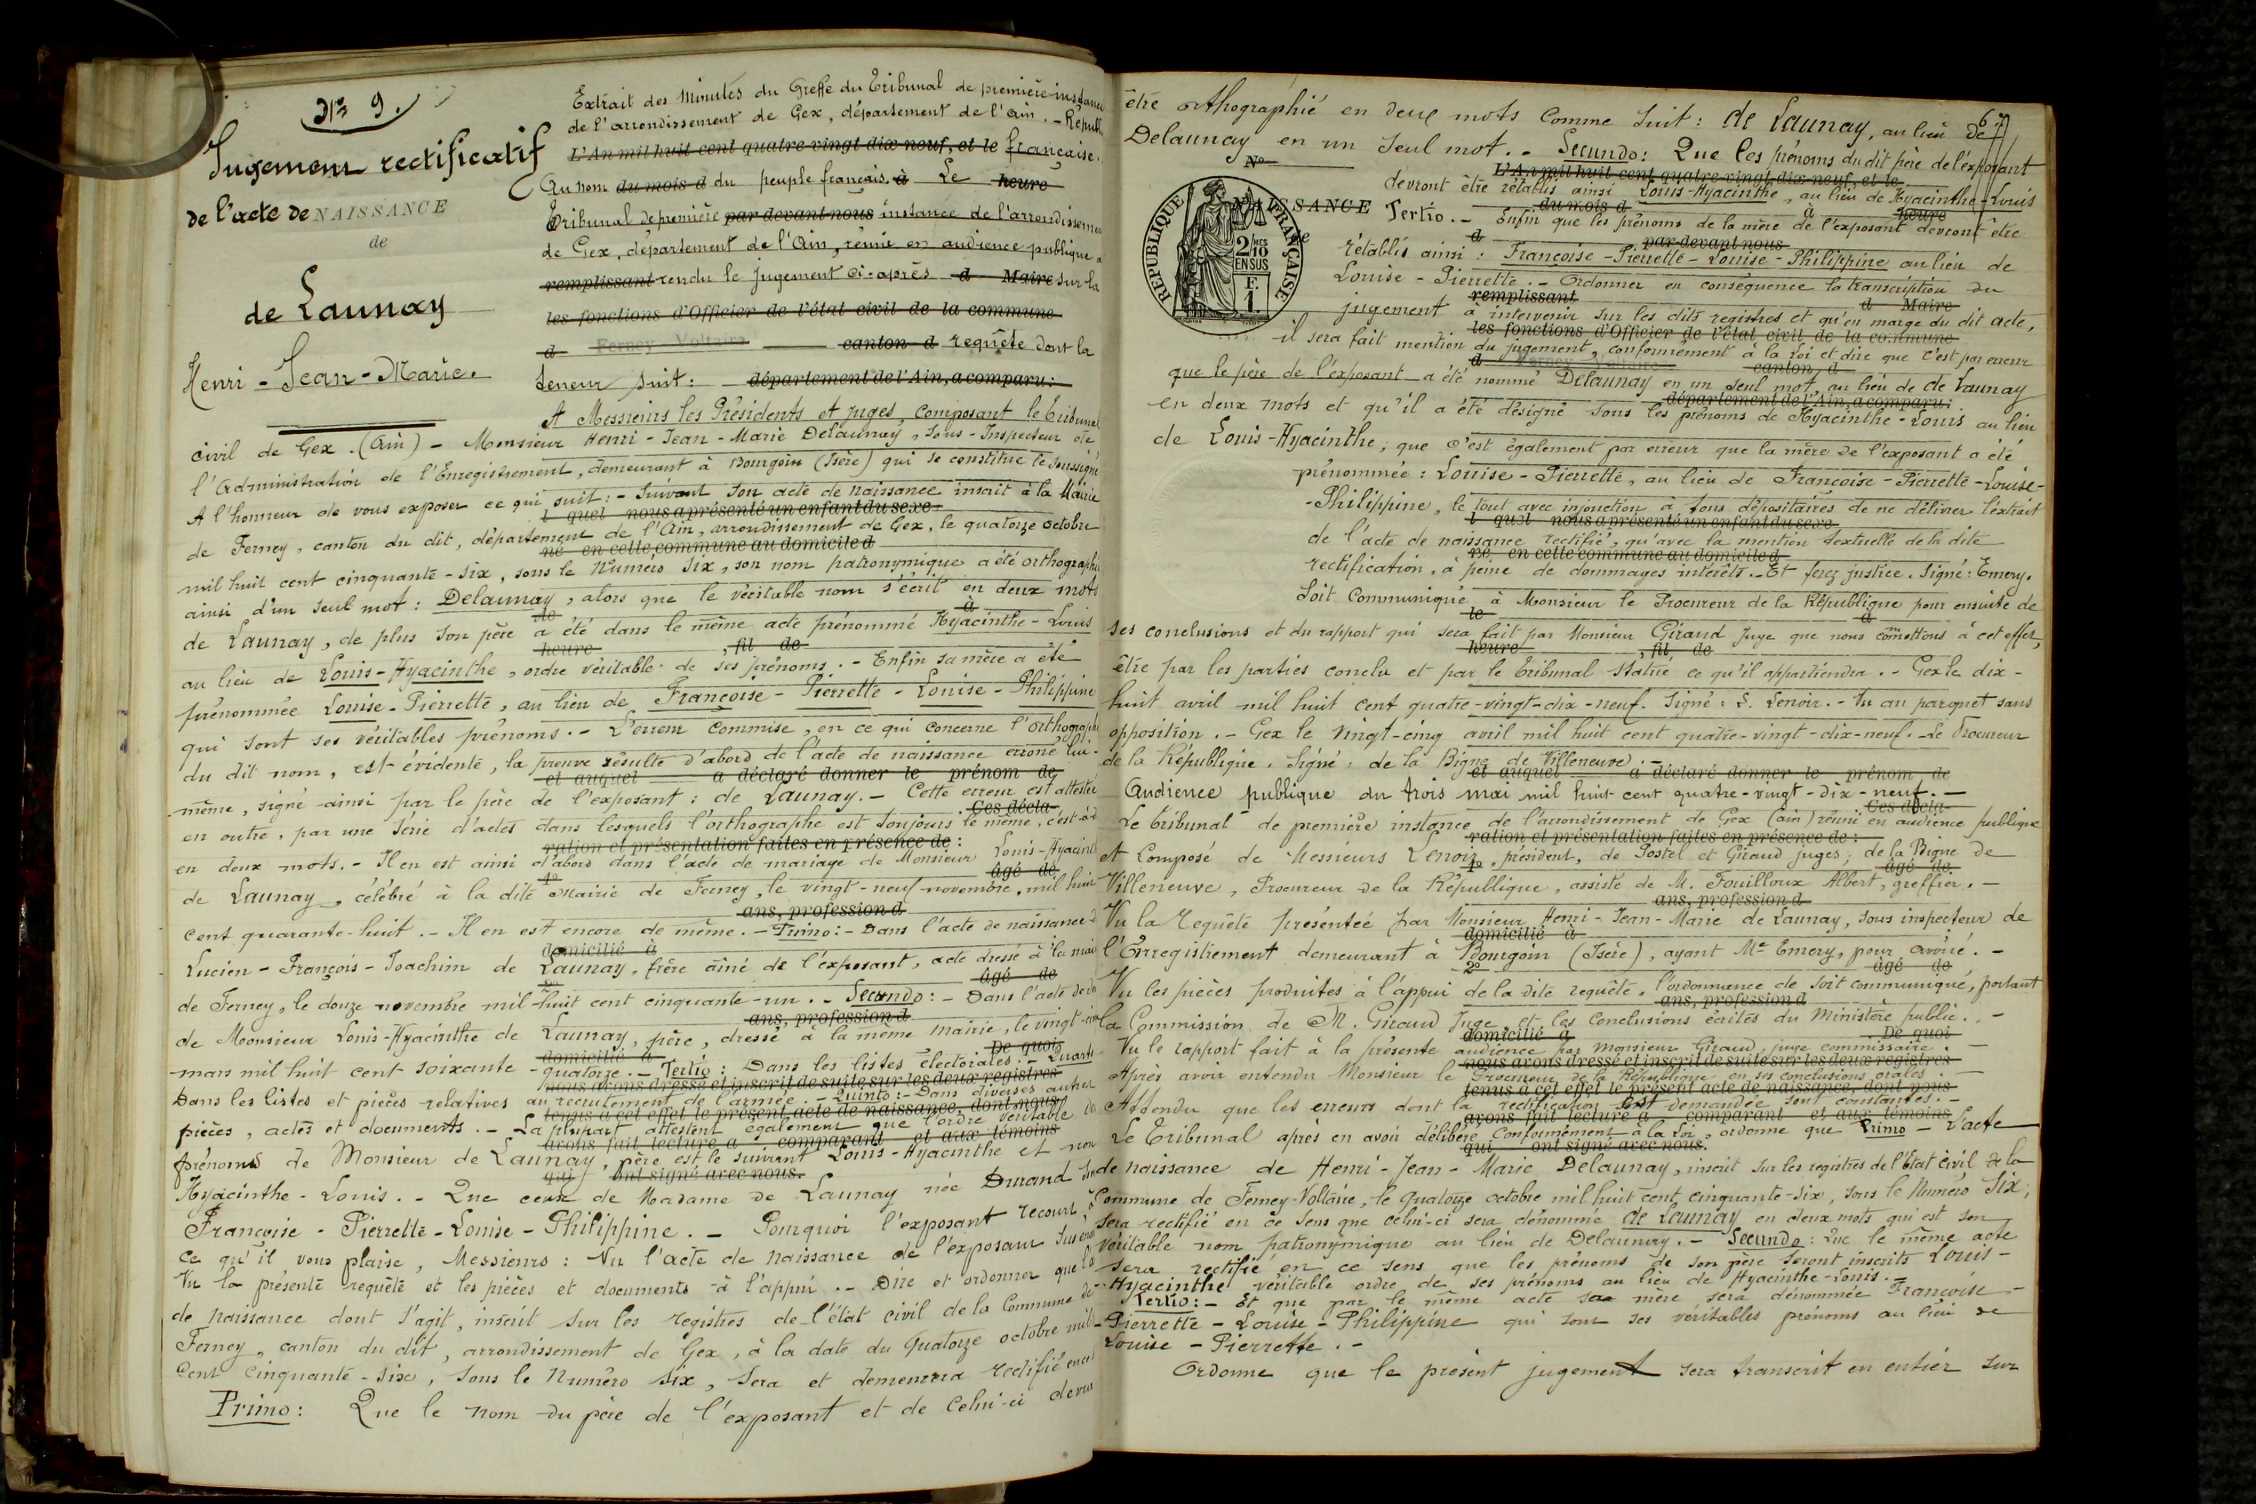 No 9.
Jugement rectificatif
de l'acte de NAISSANCE
de
de Launay
Henri - Jean - Marie.
Extrait des Minutes du Greffe du Tribunal de première instance
de l'arrondissement de Gex, département de l'Ain. - Répub
L'An mil huit cent quatre-vingt-dix-neuf, et le française.
Au nom du mois d du peuple français. à Le heure
Tribunal de première par devant nous instance de l'arrondissement
de Gex, département de l'Ain, réuni en audience publique a
remplissant rendu le jugement ci-après d Maire sur la
les fonctions d'Officier de l'état civil de la commune
d Ferney-Voltaire canton d requête dont la
teneur suit: département de l'Ain, a comparu:
A Messieurs les Présidents et juges, composant le Tribunal
civil de Gex. (Ain) - Monsieur Henri - Jean - Marie Delaunay, Sous-Inspecteur de
l'Administration de l'Enregistrement, demeurant à Bourgoin (Isère) qui se constitue le soussigné
A l'honneur de vous exposer ce qui suit: - Suivant son acte de naissance inscrit à la Mairie
l quel nous a présenté un enfant du sexe
de Ferney, canton du dit, département de l'Ain, arrondissement de Gex, le quatorze octobre
né en cette commune au domicile d
mil huit cent cinquante-six, sous le Numéro six, son nom patronymique a été orthographié
ainsi d'un seul mot: Delaunay, alors que le véritable nom s'écrit en deux mots
de à
de Launay, de plus son père a été dans le même acte prénommé Hyacinthe - Louis
heure , fil de
au lieu de Louis-Hyacinthe, ordre véritable de ses prénoms. - Enfin sa mère a été
prénommée Louise-Pierrette, au lieu de Françoise - Pierrette - Louise - Philippine
qui sont ses véritables prénoms. - L'erreur commise, en ce qui concerne l'orthographe
du dit nom, est évidente, la preuve résulte d'abord de l'acte de naissance erroné lui-
et auquel a déclaré donner le prénom de
même, signé ainsi par le père de l'exposant: de Launay. - Cette erreur est attestée
Ces décla-
en outre, par une série d'actes dans lesquels l'orthographe est toujours le même, c'est-à-d
ration et présentation faites en présence de:
en deux mots. - Il en est ainsi d'abord dans l'acte de mariage de Monsieur Louis-Hyacinthe
1o âgé de
de Launay, célébré à la dite Mairie de Ferney, le vingt-neuf novembre, mil huit
ans, profession d
cent quarante-huit. - Il en est encore de même. - Primo: - Dans l'acte de naissance d
domicilié à
Lucien - François - Joachim de Launay, frère aîné de l'exposant, acte dressé à la mai
2o âgé de
de Ferney, le douze novembre mil-huit cent cinquante-un. - Secundo: - Dans l'acte de
ans, profession d
de Monsieur Louis-Hyacinthe de Launay, père, dressé à la même mairie, le vingt-
domicilié à De quoi
mars mil huit cent soixante-quatorze. - Tertio: Dans les listes électorales. - Quarto
nous avons dressé et inscrit de suite sur les deux registres
Dans les listes et pièces relatives au recrutement de l'armée. - Quinto: - Dans diverses autres
tenus à cet effet le présent acte de naissance, dont nous
pièces, actes et documents. - La plupart attestent également que l'ordre véritable des
avons fait lecture a comparant et aux témoins
prénoms de Monsieur de Launay, père est le suivant Louis-Hyacinthe et non
qui ont signé avec nous.
Hyacinthe - Louis. - Que ceux de Madame de Launay née Durand
Françoise - Pierrette - Louise - Philippine. - Pourquoi l'exposant recourt à
ce qu'il vous plaise, Messieurs: Vu l'acte de naissance de l'exposant
Vu la présente requête et les pièces et documents à l'appui. - Dire et ordonner que
de naissance dont s'agit, inscrit sur les registres de l'état civil de la Commune de
Ferney, canton du dit, arrondissement de Gex, à la date du Quatorze octobre mil
Cent cinquante-six, sous le Numéro six, sera et demeurera rectifié en ce
Primo: Que le nom du père de l'exposant et de celui-ci devra
67
être orthographié en deux mots comme suit: de Launay, au lieu de
Delaunay en un seul mot. - Secundo: Que les prénoms du dit père de l'exposant
No L'An mil huit cent quatre-vingt-dix-neuf, et le
devront être rétablis ainsi Louis-Hyacinthe, au lieu de Hyacinthe-Louis
NAISSANCE du mois d à heure
Tertio. - Enfin que les prénoms de la mère de l'exposant devront être
de d par devant nous
RÉPUBLIQUE FRANÇAISE
2/10 EN SUS
F. 1.
rétablis ainsi: Françoise - Pierrette - Louise - Philippine au lieu de
Louise - Pierrette. - Ordonner en conséquence la transcription du
remplissant d Maire
jugement à intervenir sur les dits registres et qu'en marge du dit acte,
les fonctions d'Officier de l'état civil de la commune
il sera fait mention du jugement, conformément à la loi et dire que c'est par erreur
d Ferney-Voltaire canton d
que le père de l'exposant a été nommé Delaunay en un seul mot, au lieu de de Launay
département de l'Ain, a comparu:
en deux mots et qu'il a été désigné sous les prénoms de Hyacinthe-Louis au lieu
de Louis-Hyacinthe; que c'est également par erreur que la mère de l'exposant a été
prénommée: Louise - Pierrette, au lieu de Françoise - Pierrette - Louise -
- Philippine, le tout avec injonction à tous dépositaires de ne délivrer l'extrait
l quel nous a présenté un enfant du sexe
de l'acte de naissance rectifié, qu'avec la mention textuelle de la dite
né en cette commune au domicile d
rectification, à peine de dommages intérêts. - Et ferez justice. Signé: Emery.
Soit Communiqué à Monsieur le Procureur de la République pour ensuite de
le à
ses conclusions et du rapport qui sera fait par Monsieur Giraud Juge que nous commettons à cet effet,
heure , fil de
être par les parties conclu et par le Tribunal statué ce qu'il appartiendra. - Gex le dix-
huit avril mil huit cent quatre-vingt-dix-neuf. Signé: L. Lenoir. - Vu au parquet sans
opposition. - Gex le vingt-cinq avril mil huit cent quatre-vingt-dix-neuf. - Le Procureur
de la République. Signé: de la Bigne de Villeneuve. -
et auquel a déclaré donner le prénom de
Audience publique du trois mai mil huit cent quatre-vingt-dix-neuf. -
Ces décla-
Le tribunal de première instance de l'arrondissement de Gex (Ain) réuni en audience publique
ration et présentation faites en présence de:
et Composé de Messieurs Lenoir, président, de Postel et Giraud juges; de la Bigne de
1o âgé de
Villeneuve, Procureur de la République, assisté de M. Fouilloux Albert, greffier. -
ans, profession d
Vu la requête présentée par Monsieur Henri - Jean - Marie de Launay, sous inspecteur de
domicilié à
l'Enregistrement demeurant à Bourgoin (Isère), ayant Me Emery, pour avoué. -
2o âgé de
Vu les pièces produites à l'appui de la dite requête, l'ordonnance de soit communiqué, portant
ans, profession d
la Commission de M. Giraud Juge, et les Conclusions écrites du Ministère public. -
domicilié à De quoi
Vu le rapport fait à la présente audience par Monsieur Giraud, juge commissaire. -
nous avons dressé et inscrit de suite sur les deux registres
Après avoir entendu Monsieur le Procureur de la République en ses conclusions orales. -
tenus à cet effet le présent acte de naissance, dont nous
Attendu que les erreurs dont la rectification est demandée sont constantes. -
avons fait lecture a comparant et aux témoins
Le Tribunal après en avoir délibéré Conformément à la loi, ordonne que Primo - L'acte
qui ont signé avec nous.
de naissance de Henri - Jean - Marie Delaunay, inscrit sur les registres de l'Etat civil de la
Commune de Ferney-Voltaire, le quatorze octobre mil huit cent cinquante-six, sous le Numéro Six,
sera rectifié en ce sens que celui-ci sera dénommé de Launay en deux mots qui est son
véritable nom patronymique au lieu de Delaunay. - Secundo: Que le même acte
sera rectifié en ce sens que les prénoms de son père seront inscrits Louis-
- Hyacinthe véritable ordre de ses prénoms au lieu de Hyacinthe-Louis. -
Tertio: - Et que par le même acte sa mère sera dénommée Françoise -
- Pierrette - Louise - Philippine qui sont ses véritables prénoms au lieu de
Louise - Pierrette. -
Ordonne que le présent jugement sera transcrit en entier sur